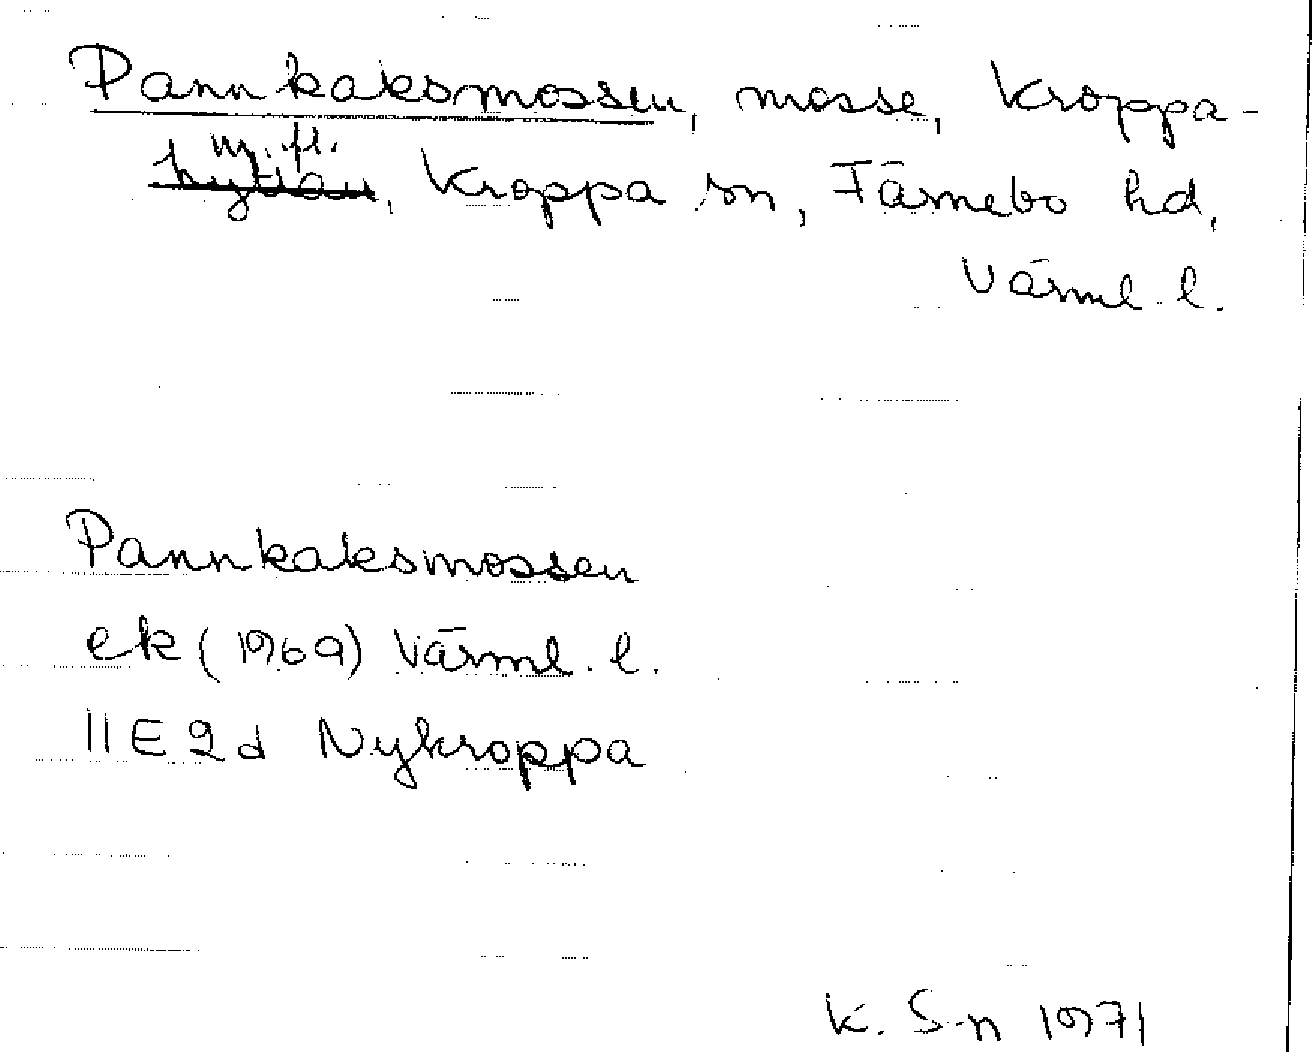 Pannkaksmossen, mosse, Kroppa-
m. fl.
hyttan, Kroppa sn, Färnebo hd,
Värml. l.
Pannkaksmossen
ek (1969) Värml. l.
11E2d Nykroppa
K. S-n 1971